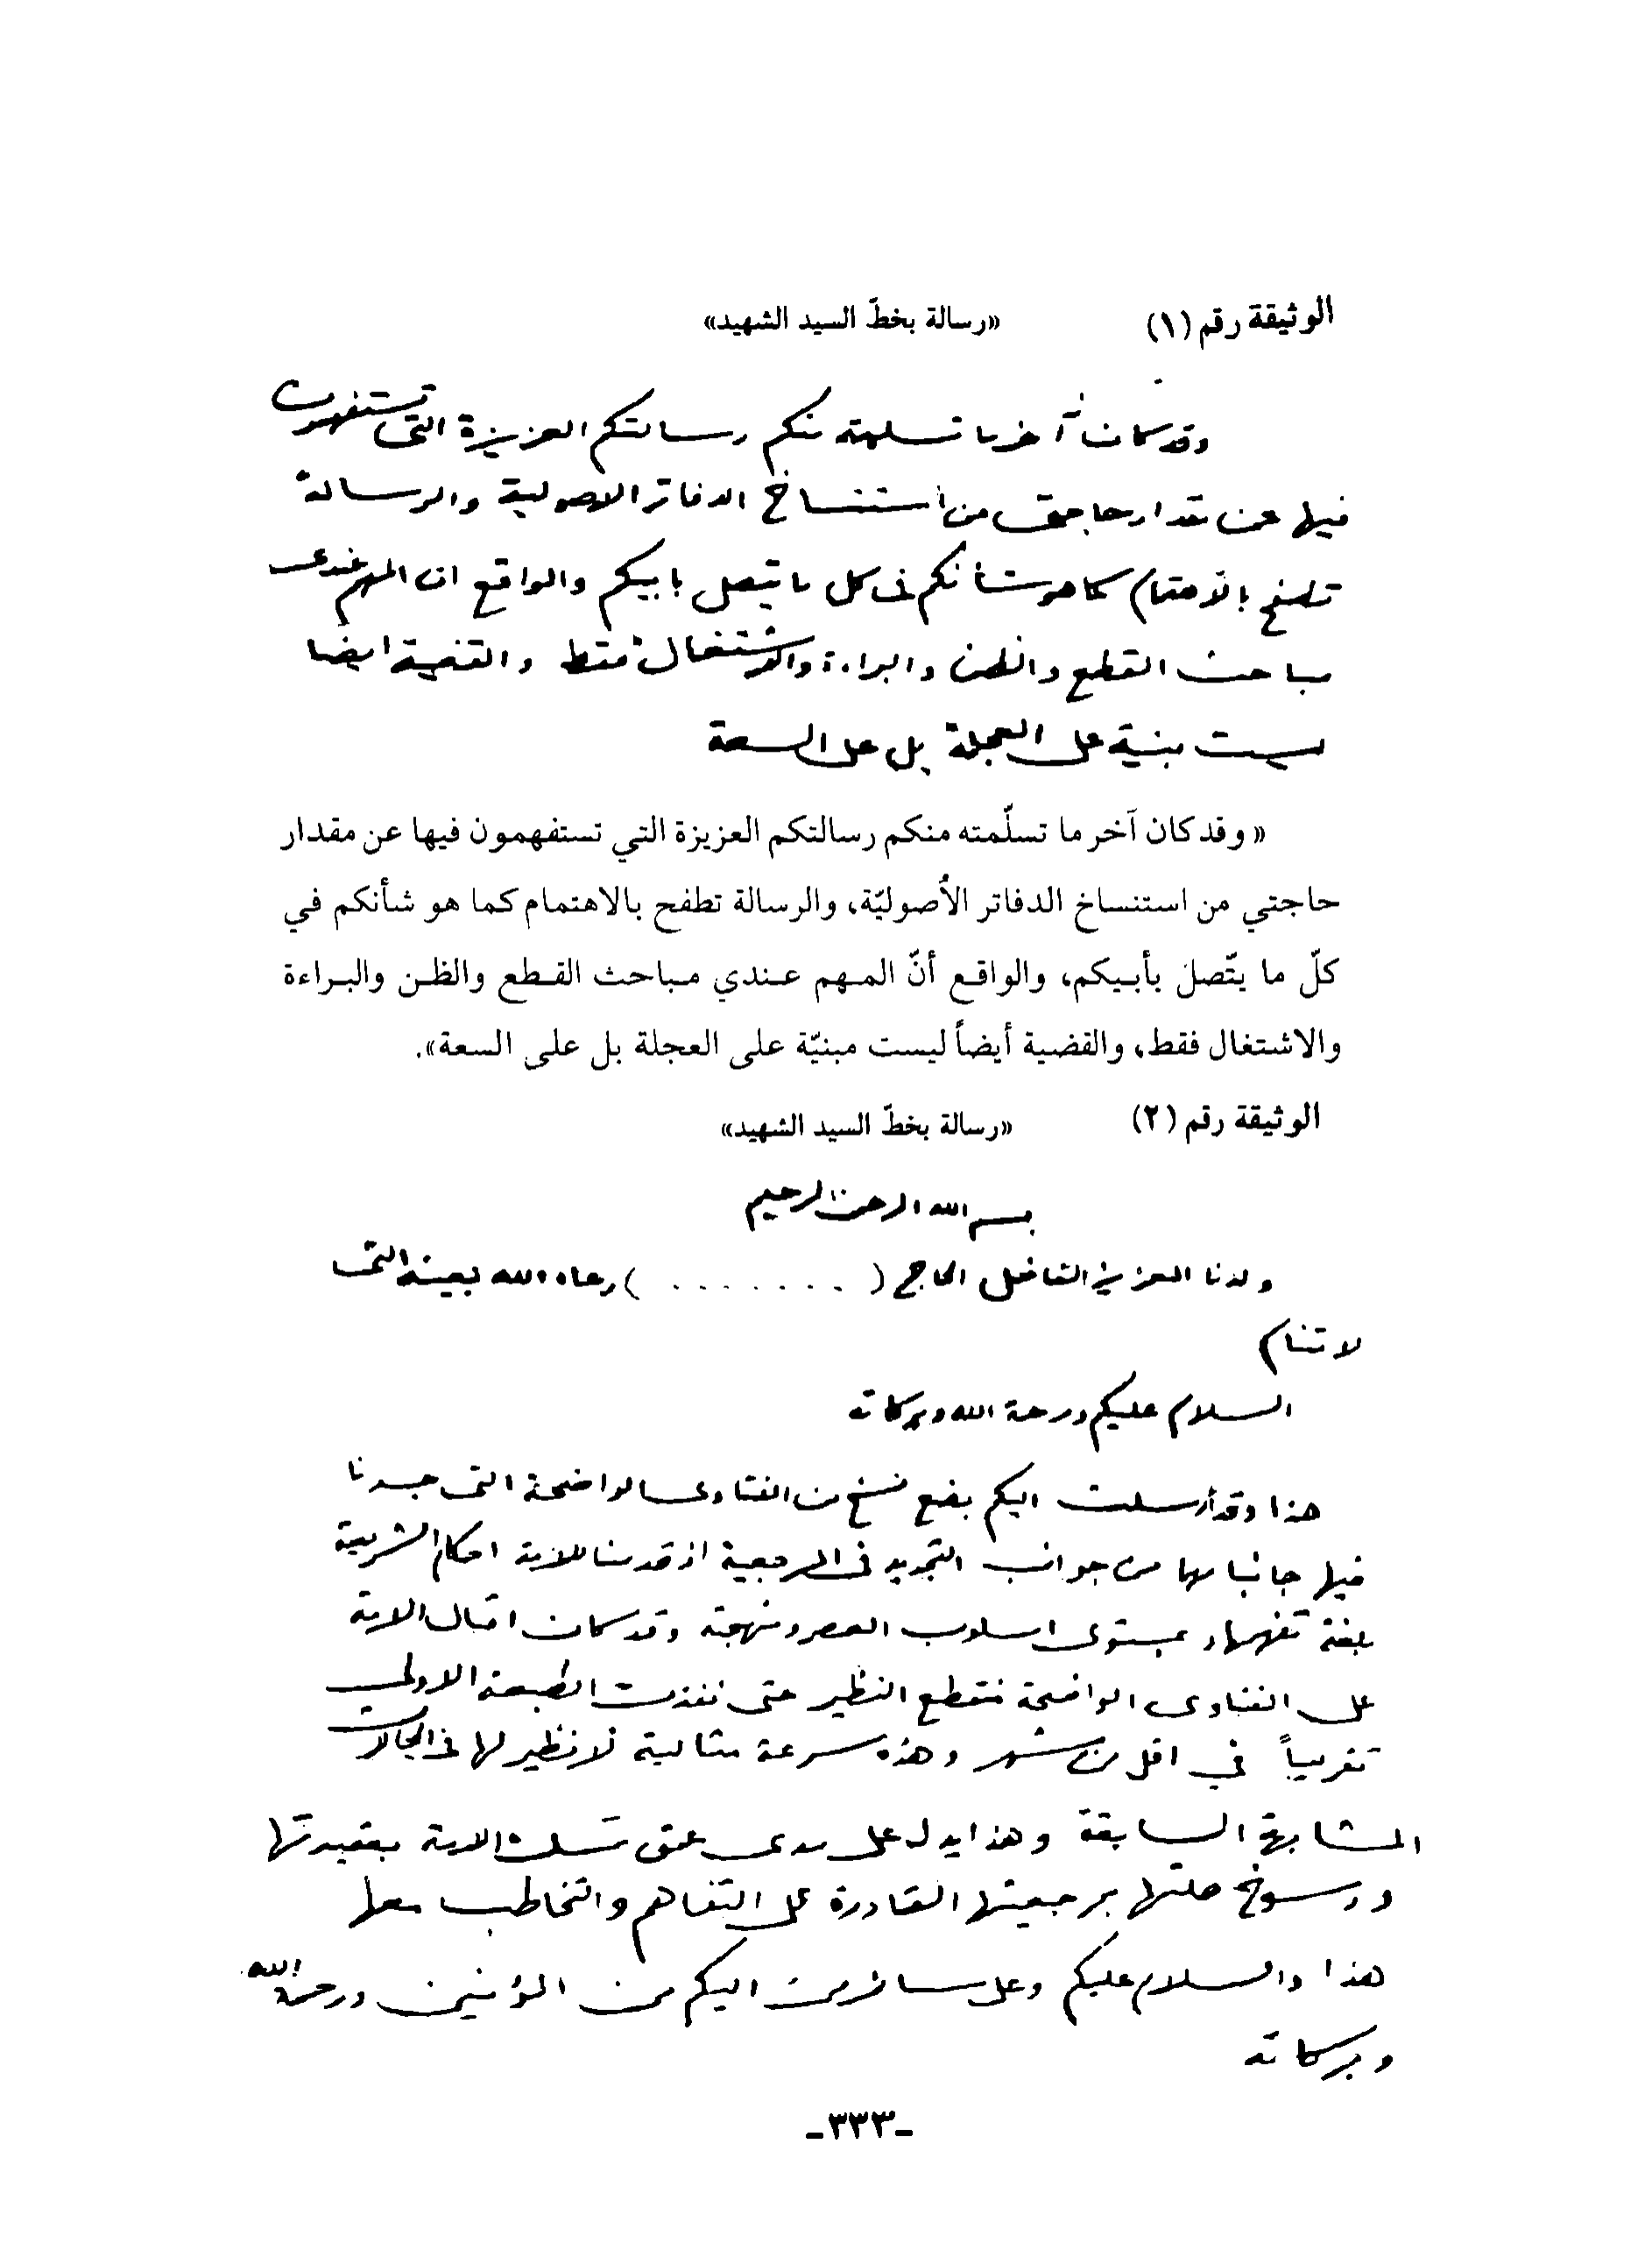 الوثيقة رقم (١) «رسالة بخطّ السيد الشهيد»
وقد كان آخر ما تسلمته منكم رسالتكم العزيزة التي تستفهمون
فيها عن مقدار حاجتي من استنساخ الدفاتر الاصولية والرسالة
تطفح بالاهتمام كما هو شأنكم في كل ما يتصل بابيكم والواقع ان المهم عندي
مباحث القطع والظن والبراءة والاشتغال فقط والقضية ايضا
ليست مبنية على العجلة بل على السعة
« وقد كان آخر ما تسلّمته منكم رسالتكم العزيزة التي تستفهمون فيها عن مقدار
حاجتي من استنساخ الدفاتر الأُصوليّة، والرسالة تطفح بالاهتمام كما هو شأنكم في
كلّ ما يتّصل بأبيكم، والواقع أنّ المهم عندي مباحث القطع والظن والبراءة
والاشتغال فقط، والقضية أيضاً ليست مبنيّة على العجلة بل على السعة».
الوثيقة رقم (٢) «رسالة بخطّ السيد الشهيد»
بسم الله الرحمن الرحيم
ولدنا العزيز الفاضل الحاج ( . . . . . . . ) رعاه الله بعينه التي
لا تنام
السلام عليكم ورحمة الله وبركاته
هذا وقد أرسلت اليكم بضع نسخ من الفتاوى الواضحة التي جسدنا
فيها جانبا مهما من جوانب التجديد في المرجعية اذ قدمنا للامة احكام الشريعة
بلغة تفهمها وبمستوى اسلوب العصر ومنهجته وقد كان اقبال الامة
على الفتاوى الواضحة منقطع النظير حتى نفذت الطبعة الاولى
تقريباً في اقل من شهر وهذه سرعة مثالية لا نظير لها في المجالات
المشابهة السابقة وهذا يدل على مدى عمق تمسك الامة بعقيدتها
ورسوخ صلتها بمرجعيتها القادرة على التفاهم والتخاطب معها
هذا والسلام عليكم وعلى سائر من اليكم من المؤمنين ورحمة الله
وبركاته
-٣٣٣-